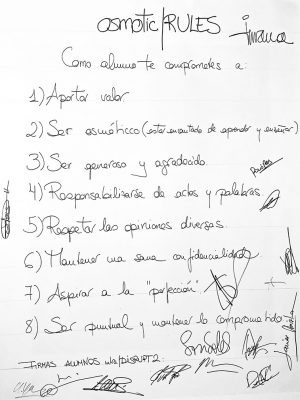 osmotic/RULES
Como alumno te comprometes a:
1) Aportar valor
2) Ser osmótico (estar encantado de aprender y enseñar)
3) Ser generoso y agradecido
4) Responsabilizarse de actos y palabras
5) Respetar las opiniones diversas.
6) Mantener una sana confidencialidad
7) Aspirar a la "perfección"
8) Ser puntual y mantener lo comprometido
FIRMAS ALUMNOS